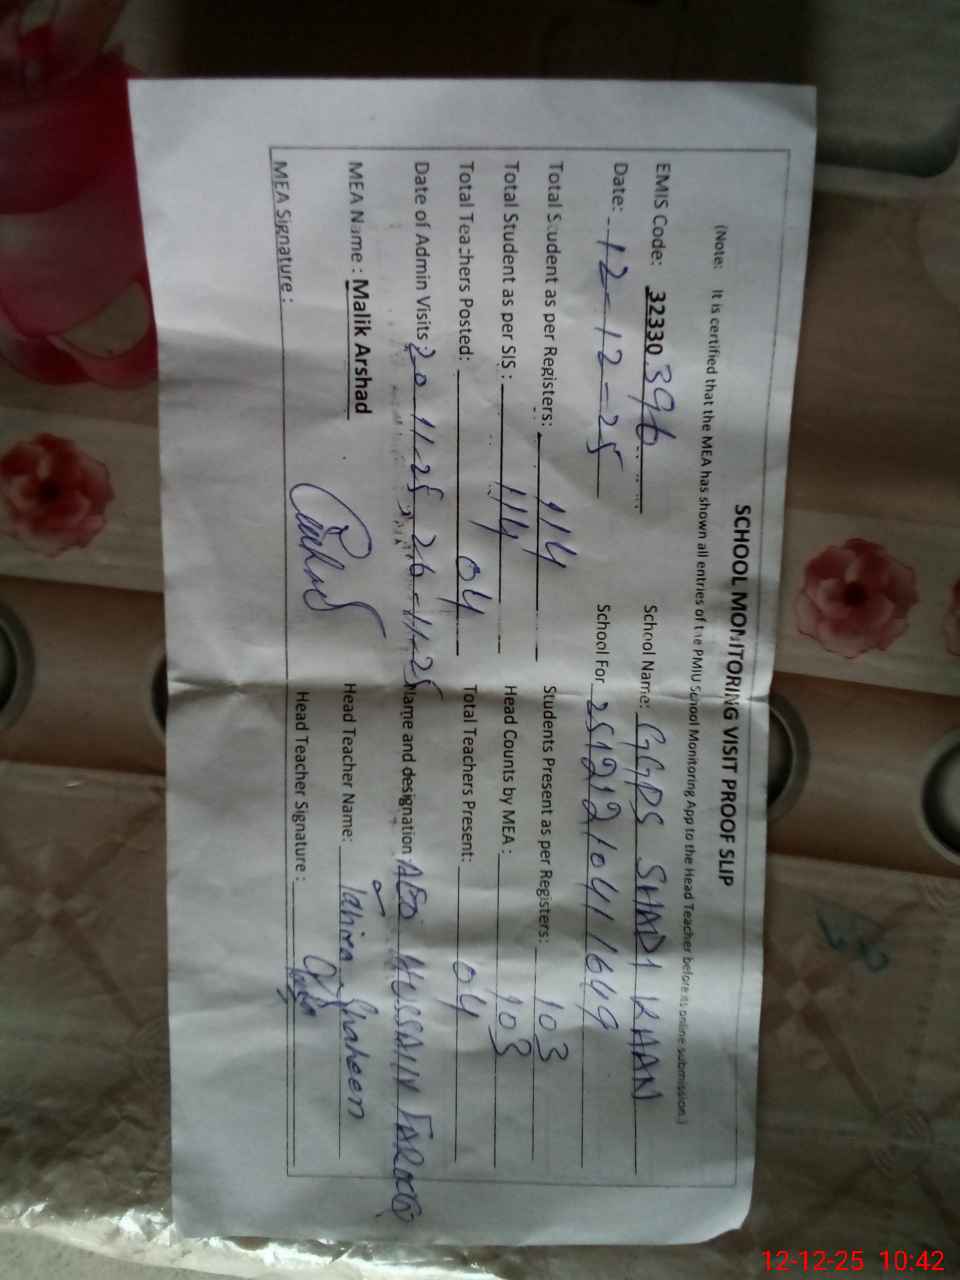 SCHOOL MONITORING VISIT PROOF SLIP
(Note: It is certified that the MEA has shown all entries of the PMIU School Monitoring App to the Head Teacher before its online submission.)
EMIS Code: 32330396 School Name: GGPS SHADI KHAN
Date: 12-12-25 School For 2512121041 1649
Total Student as per Registers: 114 Students Present as per Registers: 103
Total Student as per SIS : 114 Head Counts by MEA : 103
Total Teachers Posted: 04 Total Teachers Present: 04
Date of Admin Visits : 20 11-25 26-11-25 Name and designation AEO HUSSAIN FAROOQ
MEA Name : Malik Arshad Head Teacher Name: Tahira Shaheen
MEA Signature : Head Teacher Signature :
12-12-25 10:42